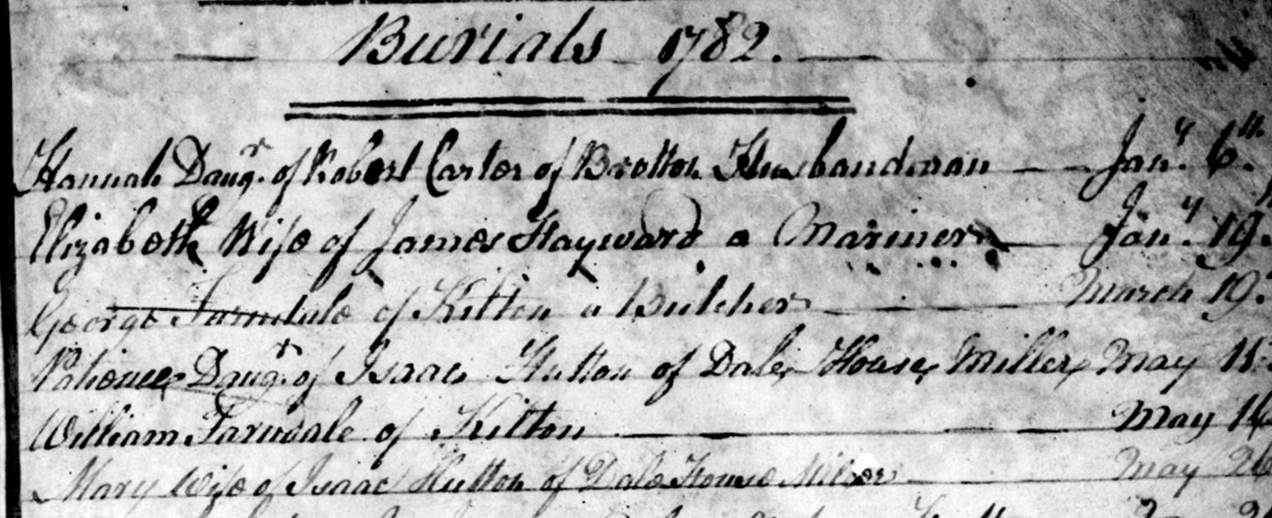 Burials 1782.
Hannah Daugr. of Robert Carter of Brotton Husbandman Jany. 6th.
Elizabeth Wife of James Hayward a Mariner Jany. 19.
George Farndale of Kilton a Butcher March 19.
Patience Daugr. of Isaac Hutton of Dale House Miller May
William Farndale of Kilton May 14
Mary Wife of Isaac Hutton of Dale House May